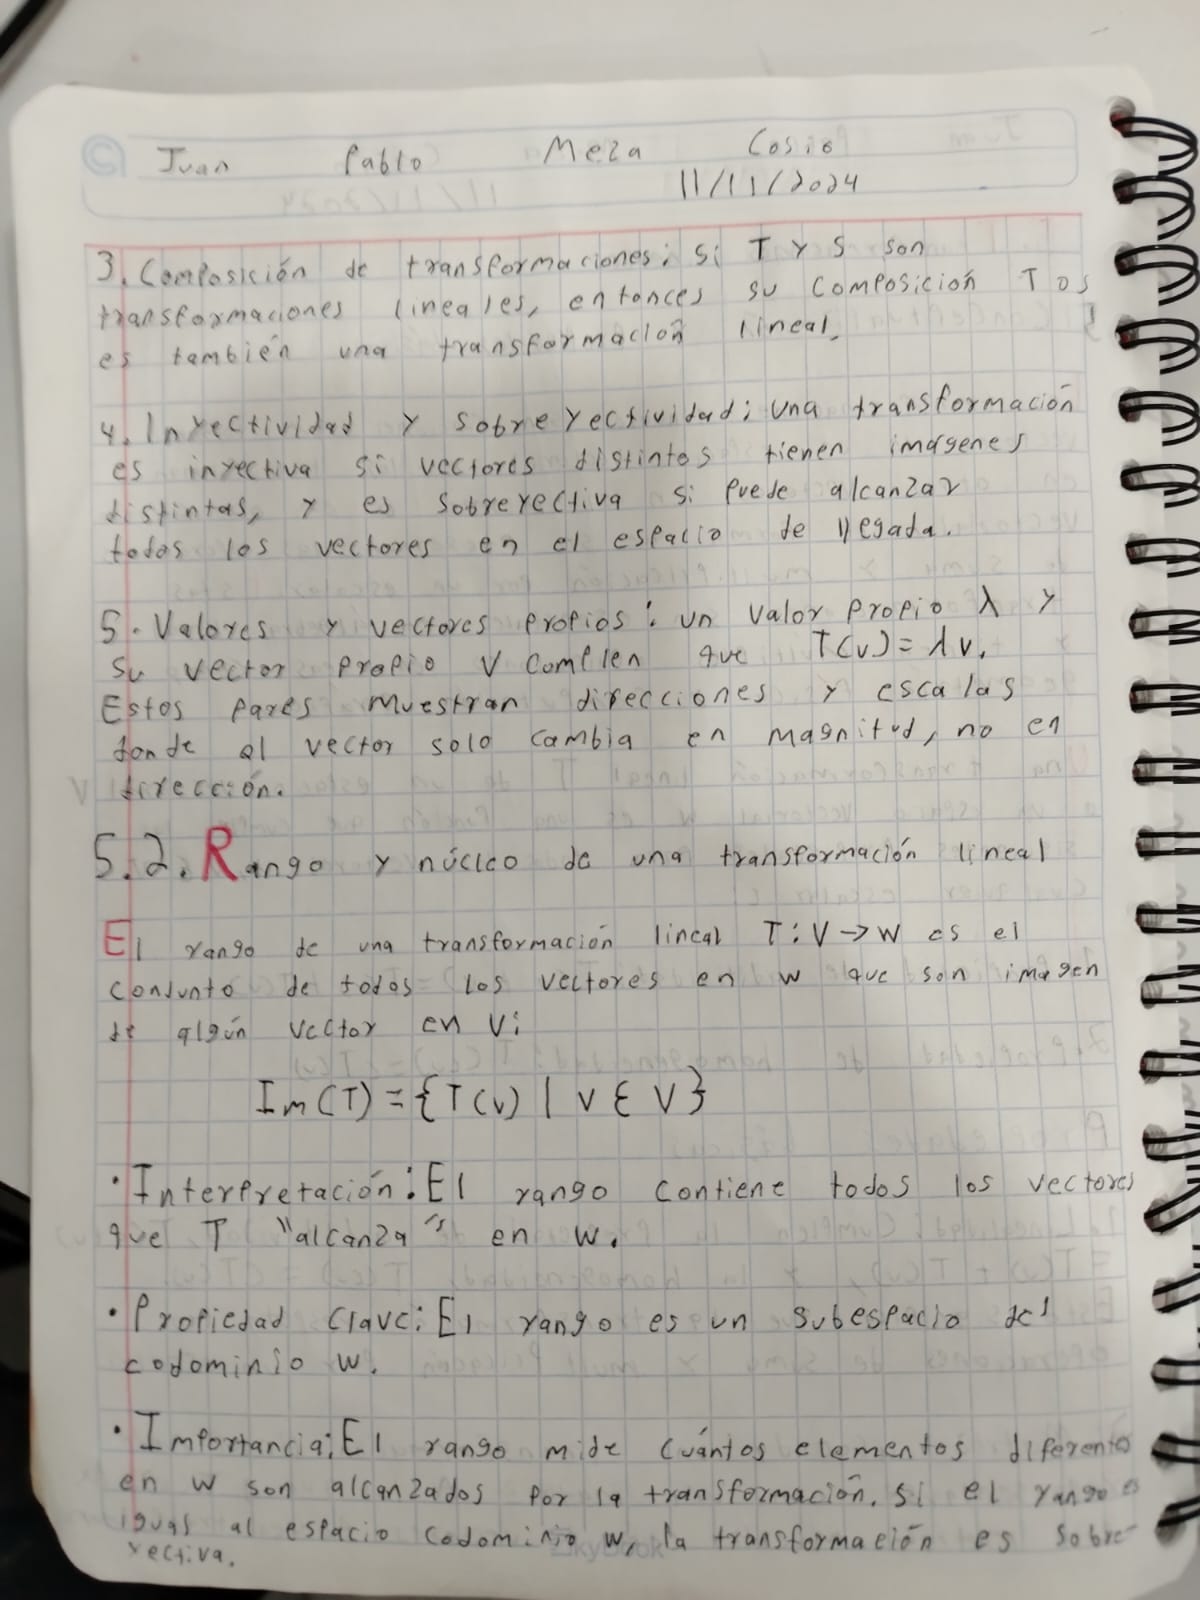 Juan Pablo Meza Cosio
11/11/2024
3. Composición de transformaciones: si T y S son
transformaciones lineales, entonces su composición T o S
es también una transformación lineal.
4. Inyectividad y sobreyectividad: una transformación
es inyectiva si vectores distintos tienen imágenes
distintas, y es sobreyectiva si puede alcanzar
todos los vectores en el espacio de llegada.
5. Valores y vectores propios: un valor propio λ y
su vector propio v complen que T(v)=λv.
Estos pares muestran direcciones y escalas
donde al vector solo cambia en magnitud, no en
dirección.
5.2. Rango y núcleo de una transformación lineal
El rango de una transformación lineal T:V→W es el
conjunto de todos los vectores en W que son imagen
de algún vector en V:
Im(T)={T(v) | v ∈ V}
• Interpretación: El rango contiene todos los vectores
que T "alcanza" en W.
• Propiedad clave: El rango es un subespacio del
codominio W.
• Importancia: El rango mide cuántos elementos diferente
en W son alcanzados por la transformación. Si el rango es
igual al espacio codominio W, la transformación es sobre-
yectiva.